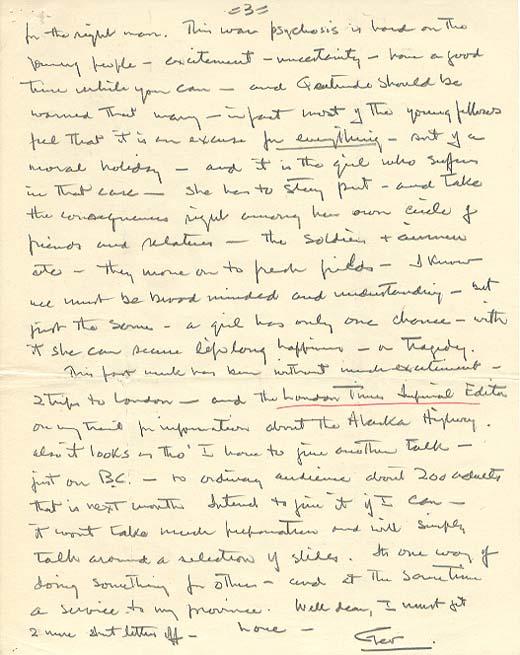 =3=
for the right man. This war psychosis is hard on the
young people - excitement - uncertainty - have a good
time while you can - and Gertrude should be
warned that many - in fact most of the young fellows
feel that it is an excuse for everything - sort of a
moral holiday - and it is the girl who suffers
in that case - she has to stay put - and take
the consequences right among her own circle of
friends and relatives - the soldiers + airmen
etc - they move on to fresh fields - I know
we must be broad minded and understanding - but
just the same - a girl has only one chance - with
it she can secure lifelong happiness - or tragedy.
This past week has been without much excitement -
2 trips to London - and the London Times Imperial Editor
on my trail for information about the Alaska Highway.
also it looks as tho' I have to give another talk -
just on B.C. - to ordinary audience about 200 adults
that is next month. Intend to give it if I can -
it wont take much preparation and will simply
talk around a selection of slides. Its one way of
doing something for others - and at the same time
a service to my province. Well dear, I must get
2 more short letters off - Love -
Geo.